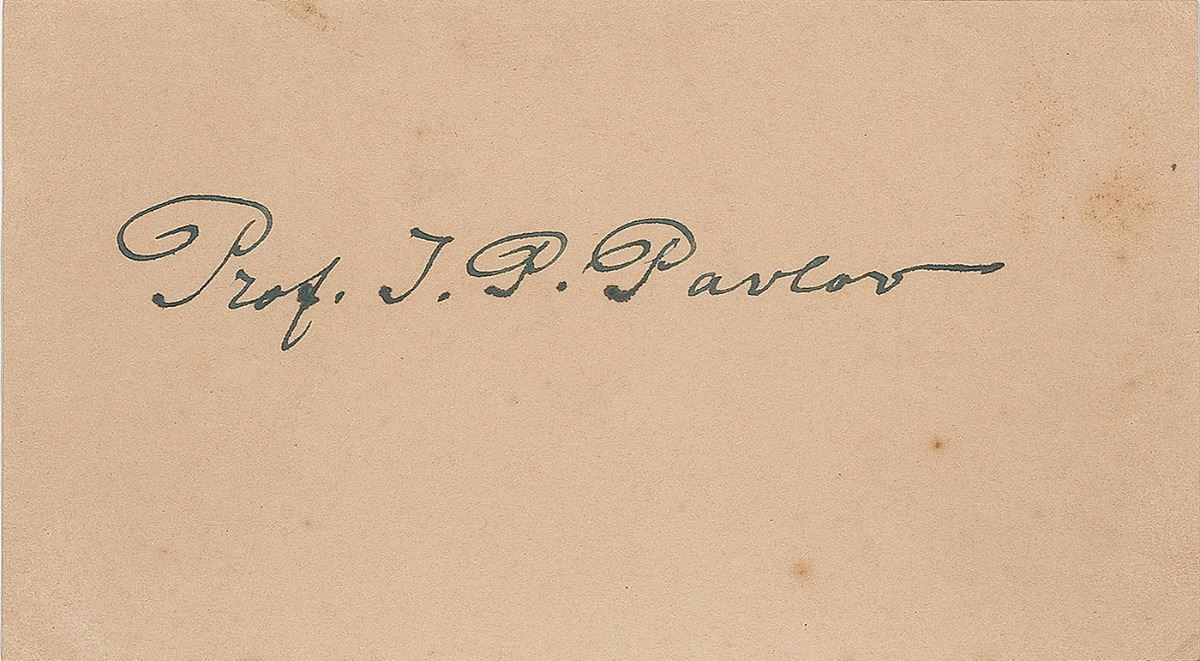 Prof. I. P. Pavlov